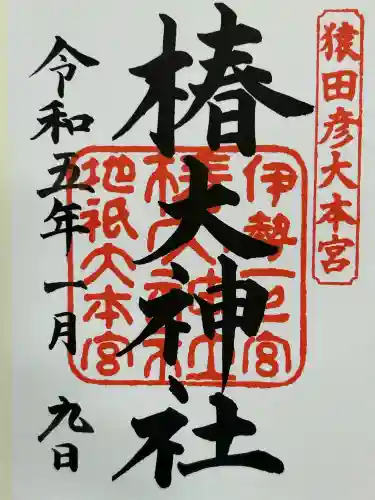 猿田彦大本宮
椿大神社
伊勢一之宮
椿大神社
地祇大本宮
令和五年一月九日